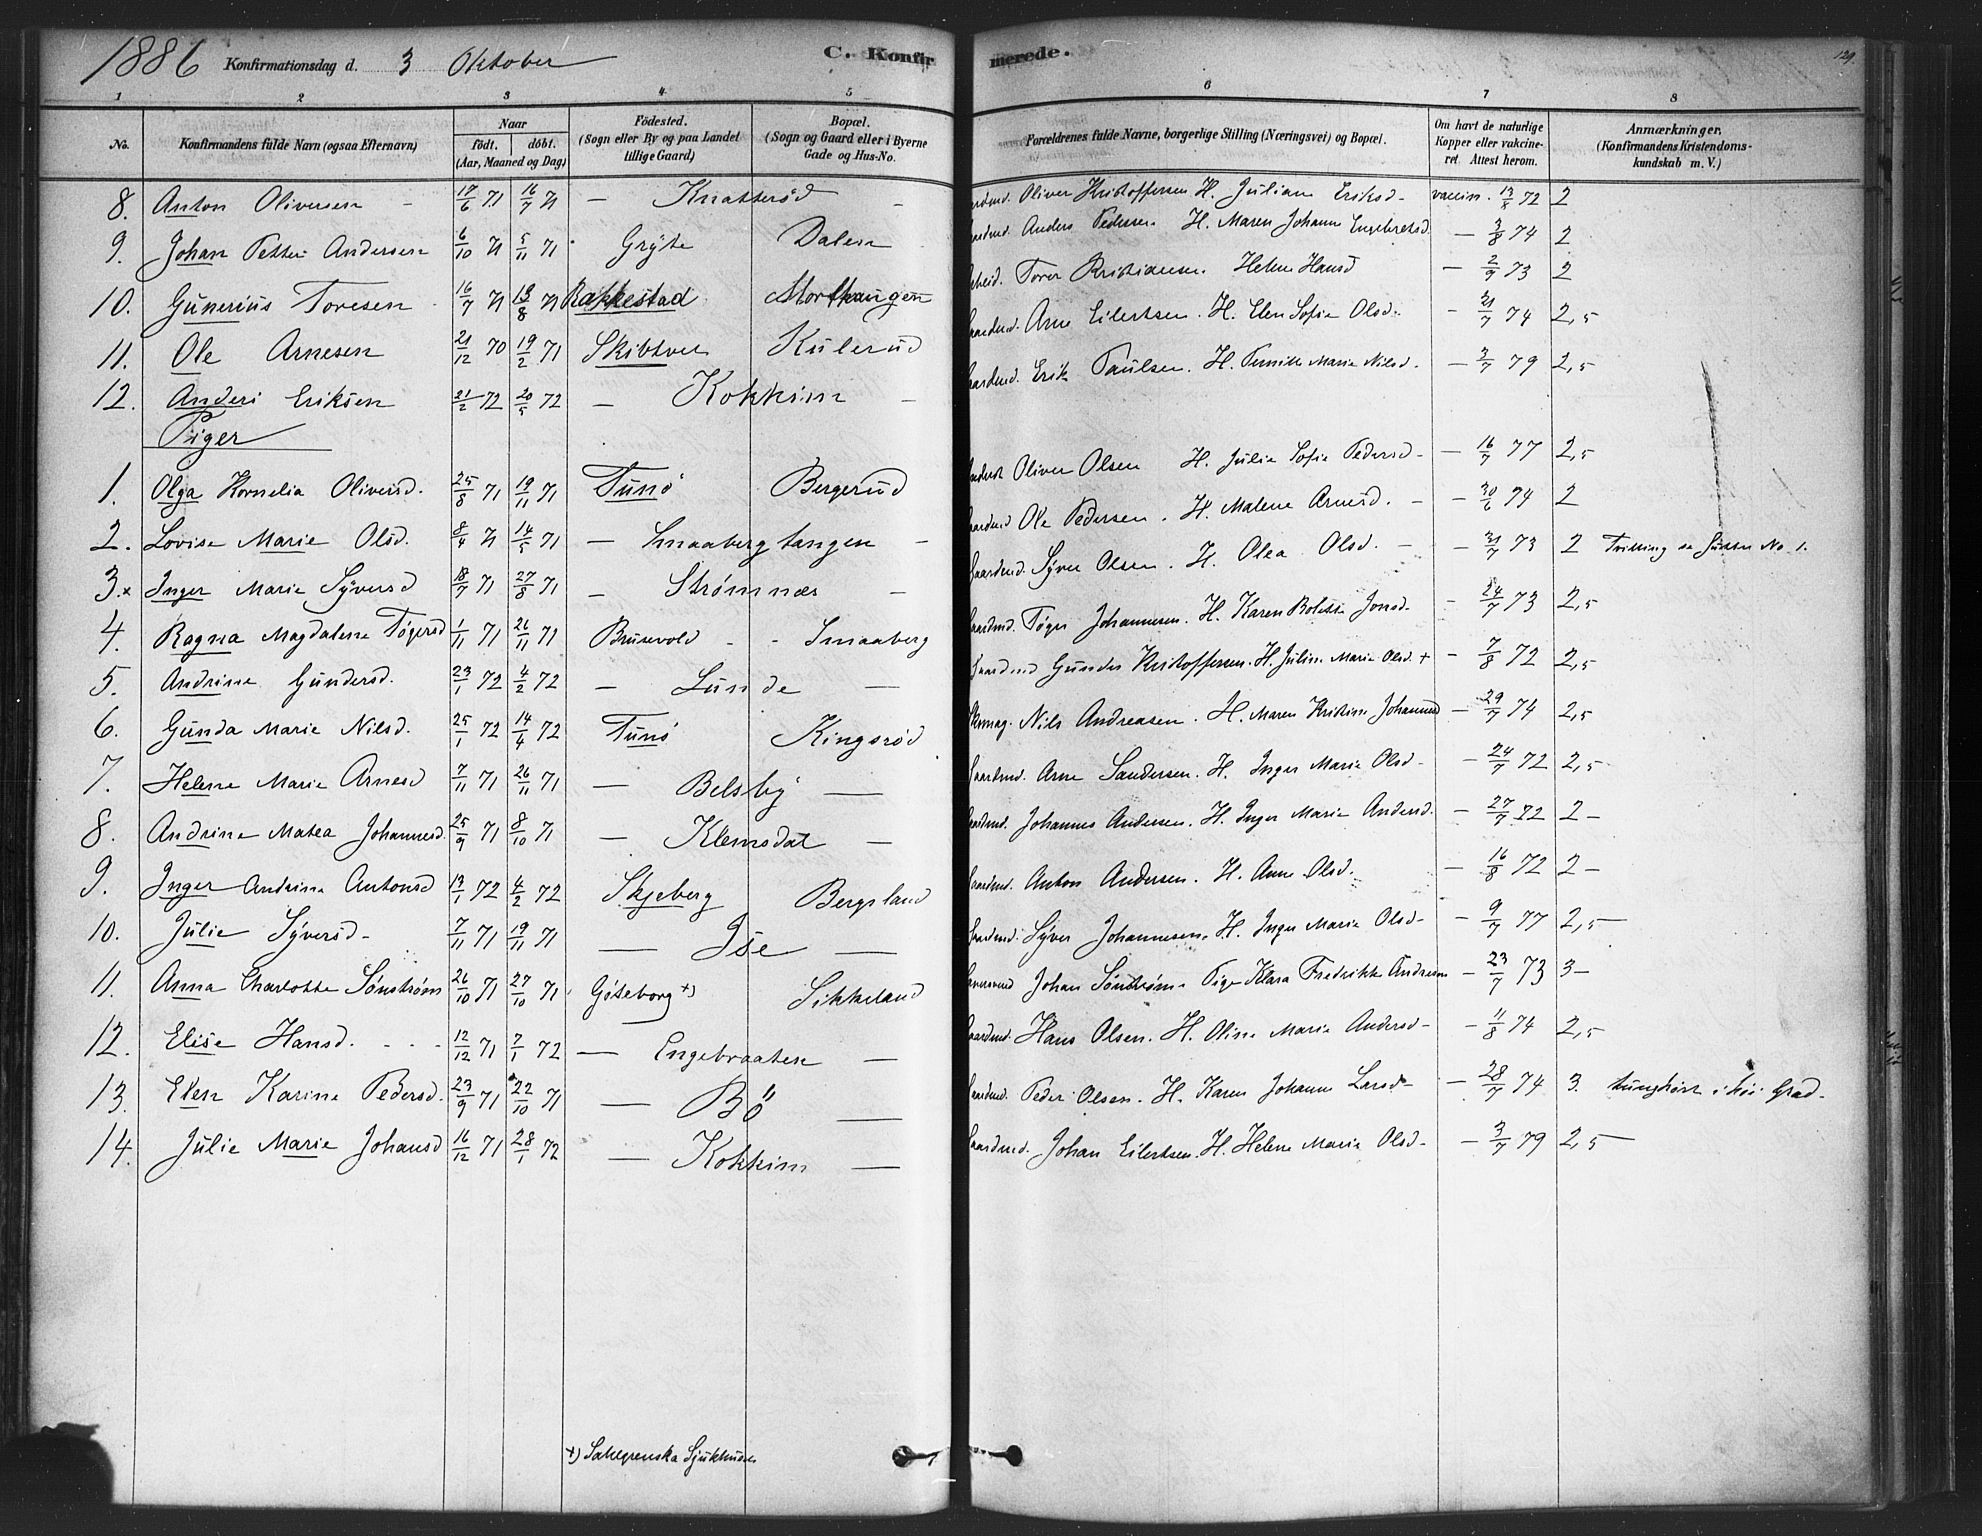 1886 Konfirmationsdag d. 3 Oktober C. Konfirmerede. 129.
1 2 3 4 5 6 7 8
No. Konfirmandens fulde Navn (ogsaa Efternavn) Naar født. døbt. (Aar, Maaned og Dag) Fødested. (Sogn eller By og paa Landet tillige Gaard) Bopæl. (Sogn og Gaard eller i Byerne Gade og Hus-No. Forældrenes fulde Navne, borgerlige Stilling (Næringsvei) og Bopæl. Om havt de naturlige Kopper eller vakcineret. Attest herom. Anmærkninger. (Konfirmandens Kristendomskundskab m. V.)
8. Anton Oliversen - 17/6 71 16/7 71 — Knatterød - Oliver Kristoffersen H. Juliane Eriksd. vaccin. 13/8 72 2
9. Johan Petter Andersen 6/10 71 5/11 71 Gryte Dalen Anders Pedersen H. Maren Johanne Engebretsd. — 3/8 74 2
10. Gunerius Toresen 16/7 71 13/8 71 Rakkestad Morthaugen Torer Kristiansen. Helene Hansd — 2/9 73 2
11. Ole Arnesen 21/12 70 19/2 71 Skibtvet Kulerud Arne Eilertsen. H. Elen Sofie Olsd. - 31/7 74 2,5
12. Anders Eriksen 21/2 72 20/5 72 — Kokkim - Erik Paulsen. H. Pernille Marie Nilsd. — 3/7 79 2,5
Piger
1. Olga Kornelia Oliversd. 25/8 71 19/11 71 Tunø Bergerud Oliver Olsen H. Julie Sofie Pedersd — 16/7 77 2,5
2. Lovise Marie Olsd. 8/4 71 14/5 71 — Smaabergtangen - Ole Pedersen. H. Malene Arnesd. — 30/6 74 2
3.x Inger Marie Syversd 18/7 71 27/8 71 — Strømnæs - Syver Olsen. H. Olea Olsd. — 31/7 73 2 Trilling se Gutter No 1.
4. Ragna Magdalene Tøgersd 1/11 71 26/11 71 Brusevold - - Smaaberg Tøger Johannesen. H. Karen Bolette Jonsd. - 24/7 73 2,5
5. Andrine Gundersd. 23/1 72 4/2 72 — Lunde — Gaardmd Gunder Kristoffersen. H. Juline Marie Olsd. + - 7/8 72 2,5
6. Gunda Marie Nilsd. 25/1 72 14/4 72 Tunø Kingsrød Nils Andreasen. H. Maren Kristine Johannesd — 29/7 74 2,5
7. Helene Marie Arnesd 7/11 71 26/11 71 — Belsby — Arne Sandersen. H. Inger Marie Olsd - — 24/7 72 2,5
8. Andrine Matea Johannesd. 25/9 71 8/10 71 — Klemsdal — Johannes Andersen. H. Inger Marie Andersd. — 27/7 72 2 -
9. Inger Andrine Antonsd 13/1 72 4/2 72 Skjeberg Bergsland Anton Andersen. H. Anne Olsd. — 16/8 72 2 -
10. Julie Syversd - 7/11 71 19/11 71 — Ise — Syver Johannesen. H. Inger Marie Olsd - — 9/7 77 2,5
11. Anna Charlotte Sønstrøm 26/10 71 27/10 71 Göteborg +) Sikkeland Johan Sønstrøm. Pige Klara Fredrikke Andreasen — 23/7 73 3 -
12. Elise Hansd. - - - 12/12 71 7/1 72 — Engebraaten — Hans Olsen. H. Oline Marie Andersd - — 11/8 74 2,5
13. Elen Karine Pedersd. 23/9 71 22/10 71 — Bö — Peder Olsen. H. Karen Johanne Larsd — 28/7 74 3. tunghørt i høi Grad.
14. Julie Marie Johansd 16/12 71 28/1 72 — Kokkim — Johan Eilertsen. H. Helene Marie Olsd - — 3/7 79 2,5
+) Sahlgrenska Sjukhuset